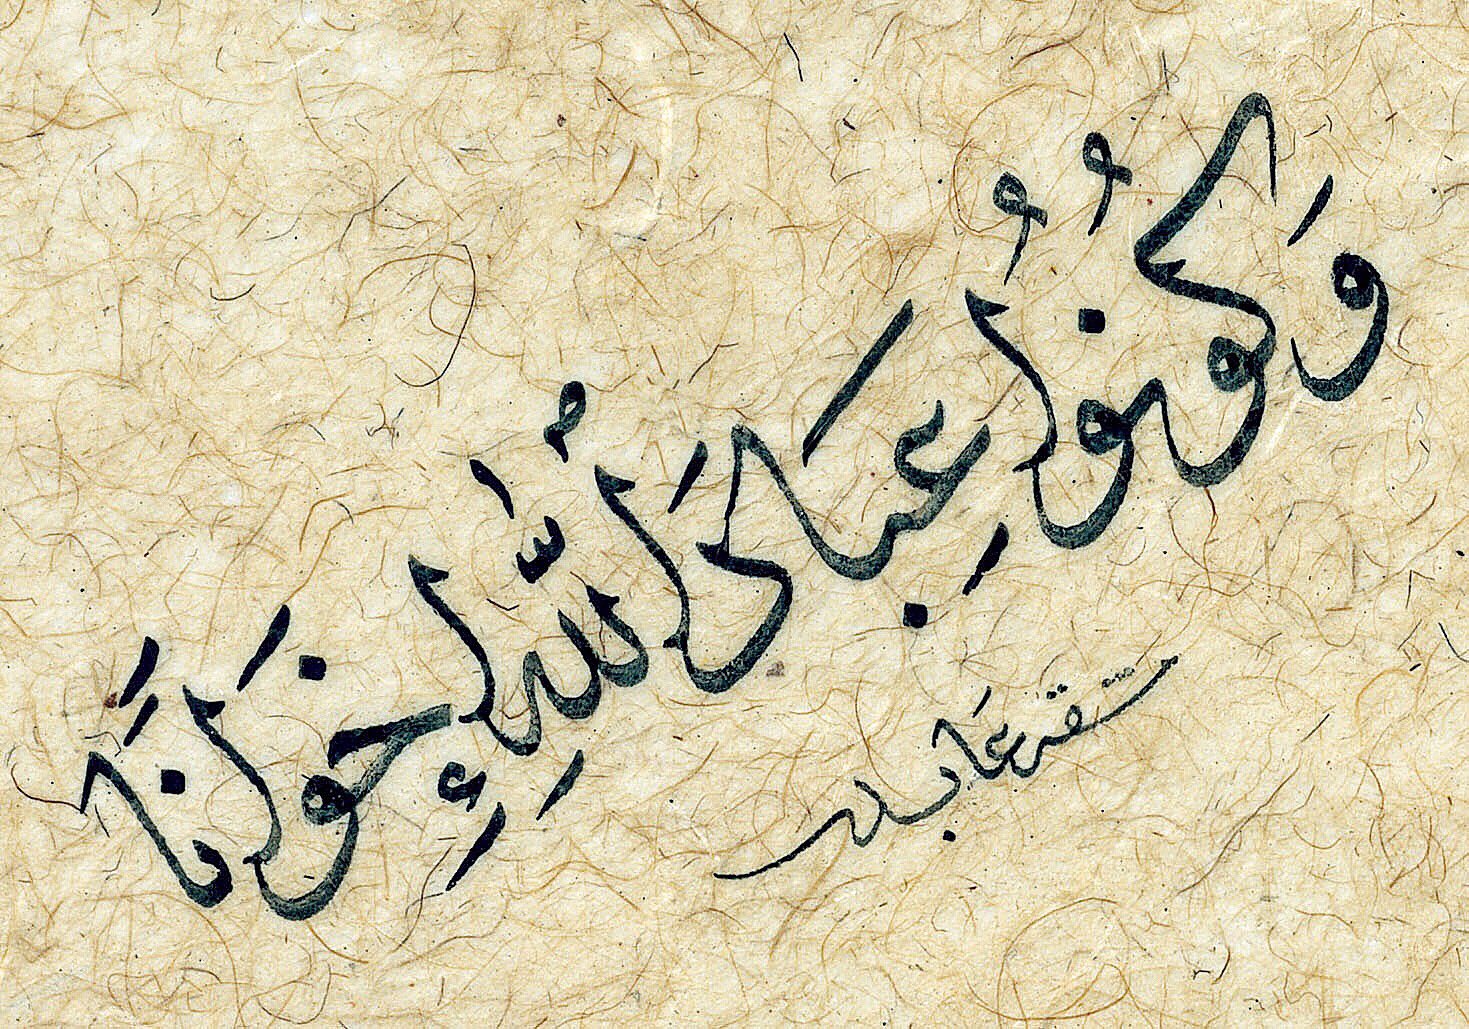 وَكُونُوا عِبَادَ اللَّهِ إِخْوَانًا
مشقه عابد